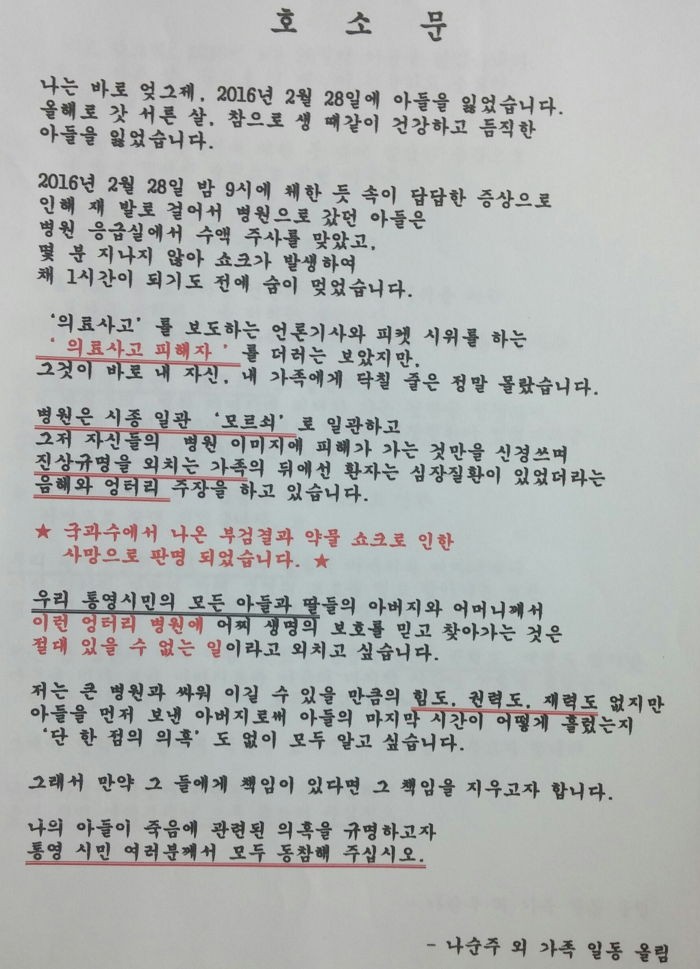 호 소 문
나는 바로 엊그제, 2016년 2월 28일에 아들을 잃었습니다.
올해로 갓 서른 살, 참으로 생 때같이 건강하고 듬직한
아들을 잃었습니다.
2016년 2월 28일 밤 9시에 체한 듯 속이 답답한 증상으로
인해 재 발로 걸어서 병원으로 갔던 아들은
병원 응급실에서 수액 주사를 맞았고,
몇 분 지나지 않아 쇼크가 발생하여
채 1시간이 되기도 전에 숨이 멎었습니다.
'의료사고' 를 보도하는 언론기사와 피켓 시위를 하는
' 의료사고 피해자 ' 를 더러는 보았지만,
그것이 바로 내 자신, 내 가족에게 닥칠 줄은 정말 몰랐습니다.
병원은 시종 일관 '모르쇠' 로 일관하고
그저 자신들의 병원 이미지에 피해가 가는 것만을 신경쓰며
진상규명을 외치는 가족의 뒤에선 환자는 심장질환이 있었더라는
음해와 엉터리 주장을 하고 있습니다.
★ 국과수에서 나온 부검결과 약물 쇼크로 인한
사망으로 판명 되었습니다. ★
우리 통영시민의 모든 아들과 딸들의 아버지와 어머니께서
이런 엉터리 병원에 어찌 생명의 보호를 믿고 찾아가는 것은
절대 있을 수 없는 일이라고 외치고 싶습니다.
저는 큰 병원과 싸워 이길 수 있을 만큼의 힘도, 권력도, 재력도 없지만
아들을 먼저 보낸 아버지로써 아들의 마지막 시간이 어떻게 흘렀는지
'단 한 점의 의혹' 도 없이 모두 알고 싶습니다.
그래서 만약 그 들에게 책임이 있다면 그 책임을 지우고자 합니다.
나의 아들이 죽음에 관련된 의혹을 규명하고자
통영 시민 여러분께서 모두 동참해 주십시오.
- 나순주 외 가족 일동 올림